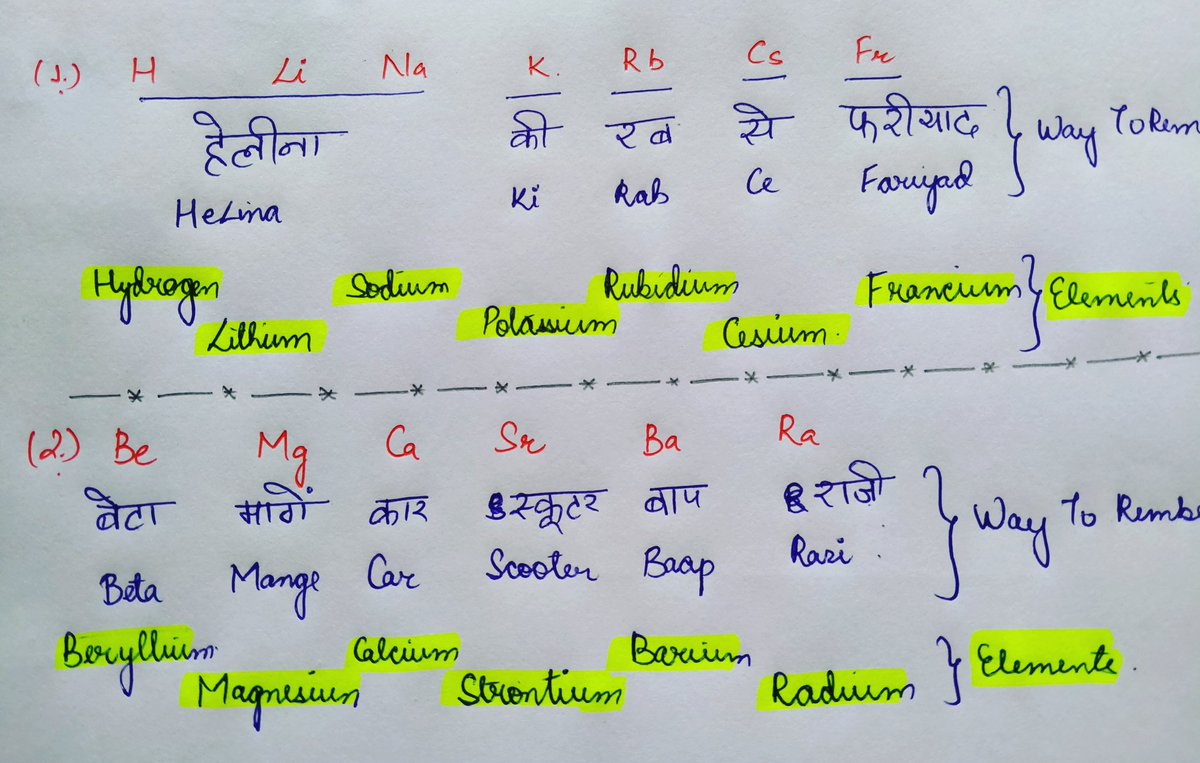 (1.) H Li Na K. Rb Cs Fr
हेलीना की रब से फरीयाद } Way To Rem
HeLina Ki Rab Ce Fariyad
Hydrogen Lithium Sodium Potassium Rubidium Cesium. Francium } Elements
(2.) Be Mg Ca Sr Ba Ra
बेटा मागें कार स्कूटर बाप राजी } Way To Rembe
Beta Mange Car Scooter Baap Razi.
Beryllium Magnesium Calcium Strontium Barium Radium } Elements.